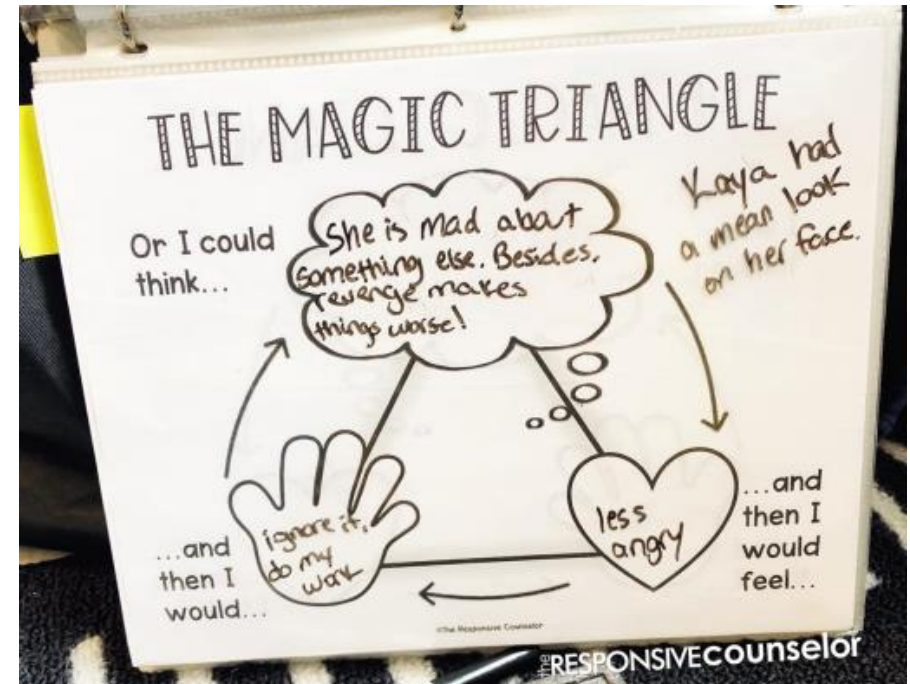 THE MAGIC TRIANGLE
Kaya had
a mean look
on her face.
Or I could
think...
She is mad about
something else. Besides,
revenge makes
things worse!
...and
then I
would
feel...
less
angry
...and
then I
would...
ignore it,
do my
work
©The Responsive Counselor
the RESPONSIVE COUNSELOR